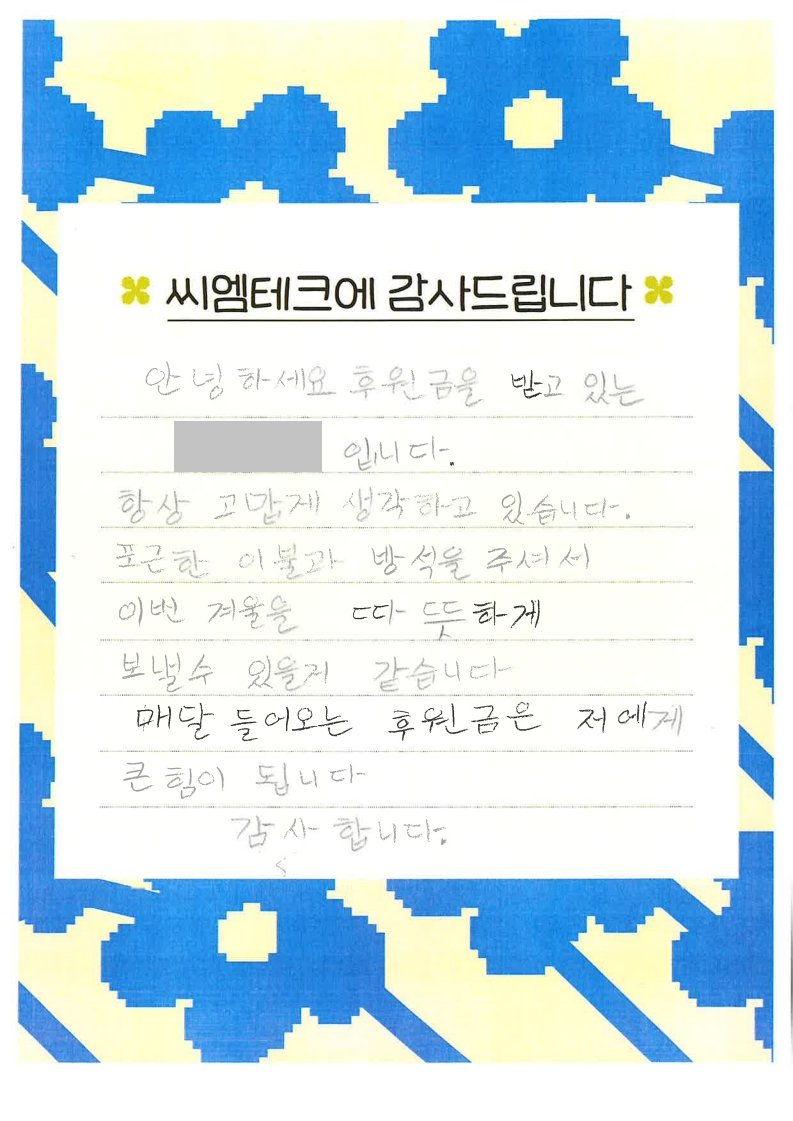 씨엠테크에 감사드립니다
안녕하세요 후원금을 받고 있는
입니다.
항상 고맙게 생각하고 있습니다.
포근한 이불과 방석을 주셔서
이번 겨울을 따뜻하게
보낼수 있을거 같습니다
매달 들어오는 후원금은 저에게
큰 힘이 됩니다
감사합니다.